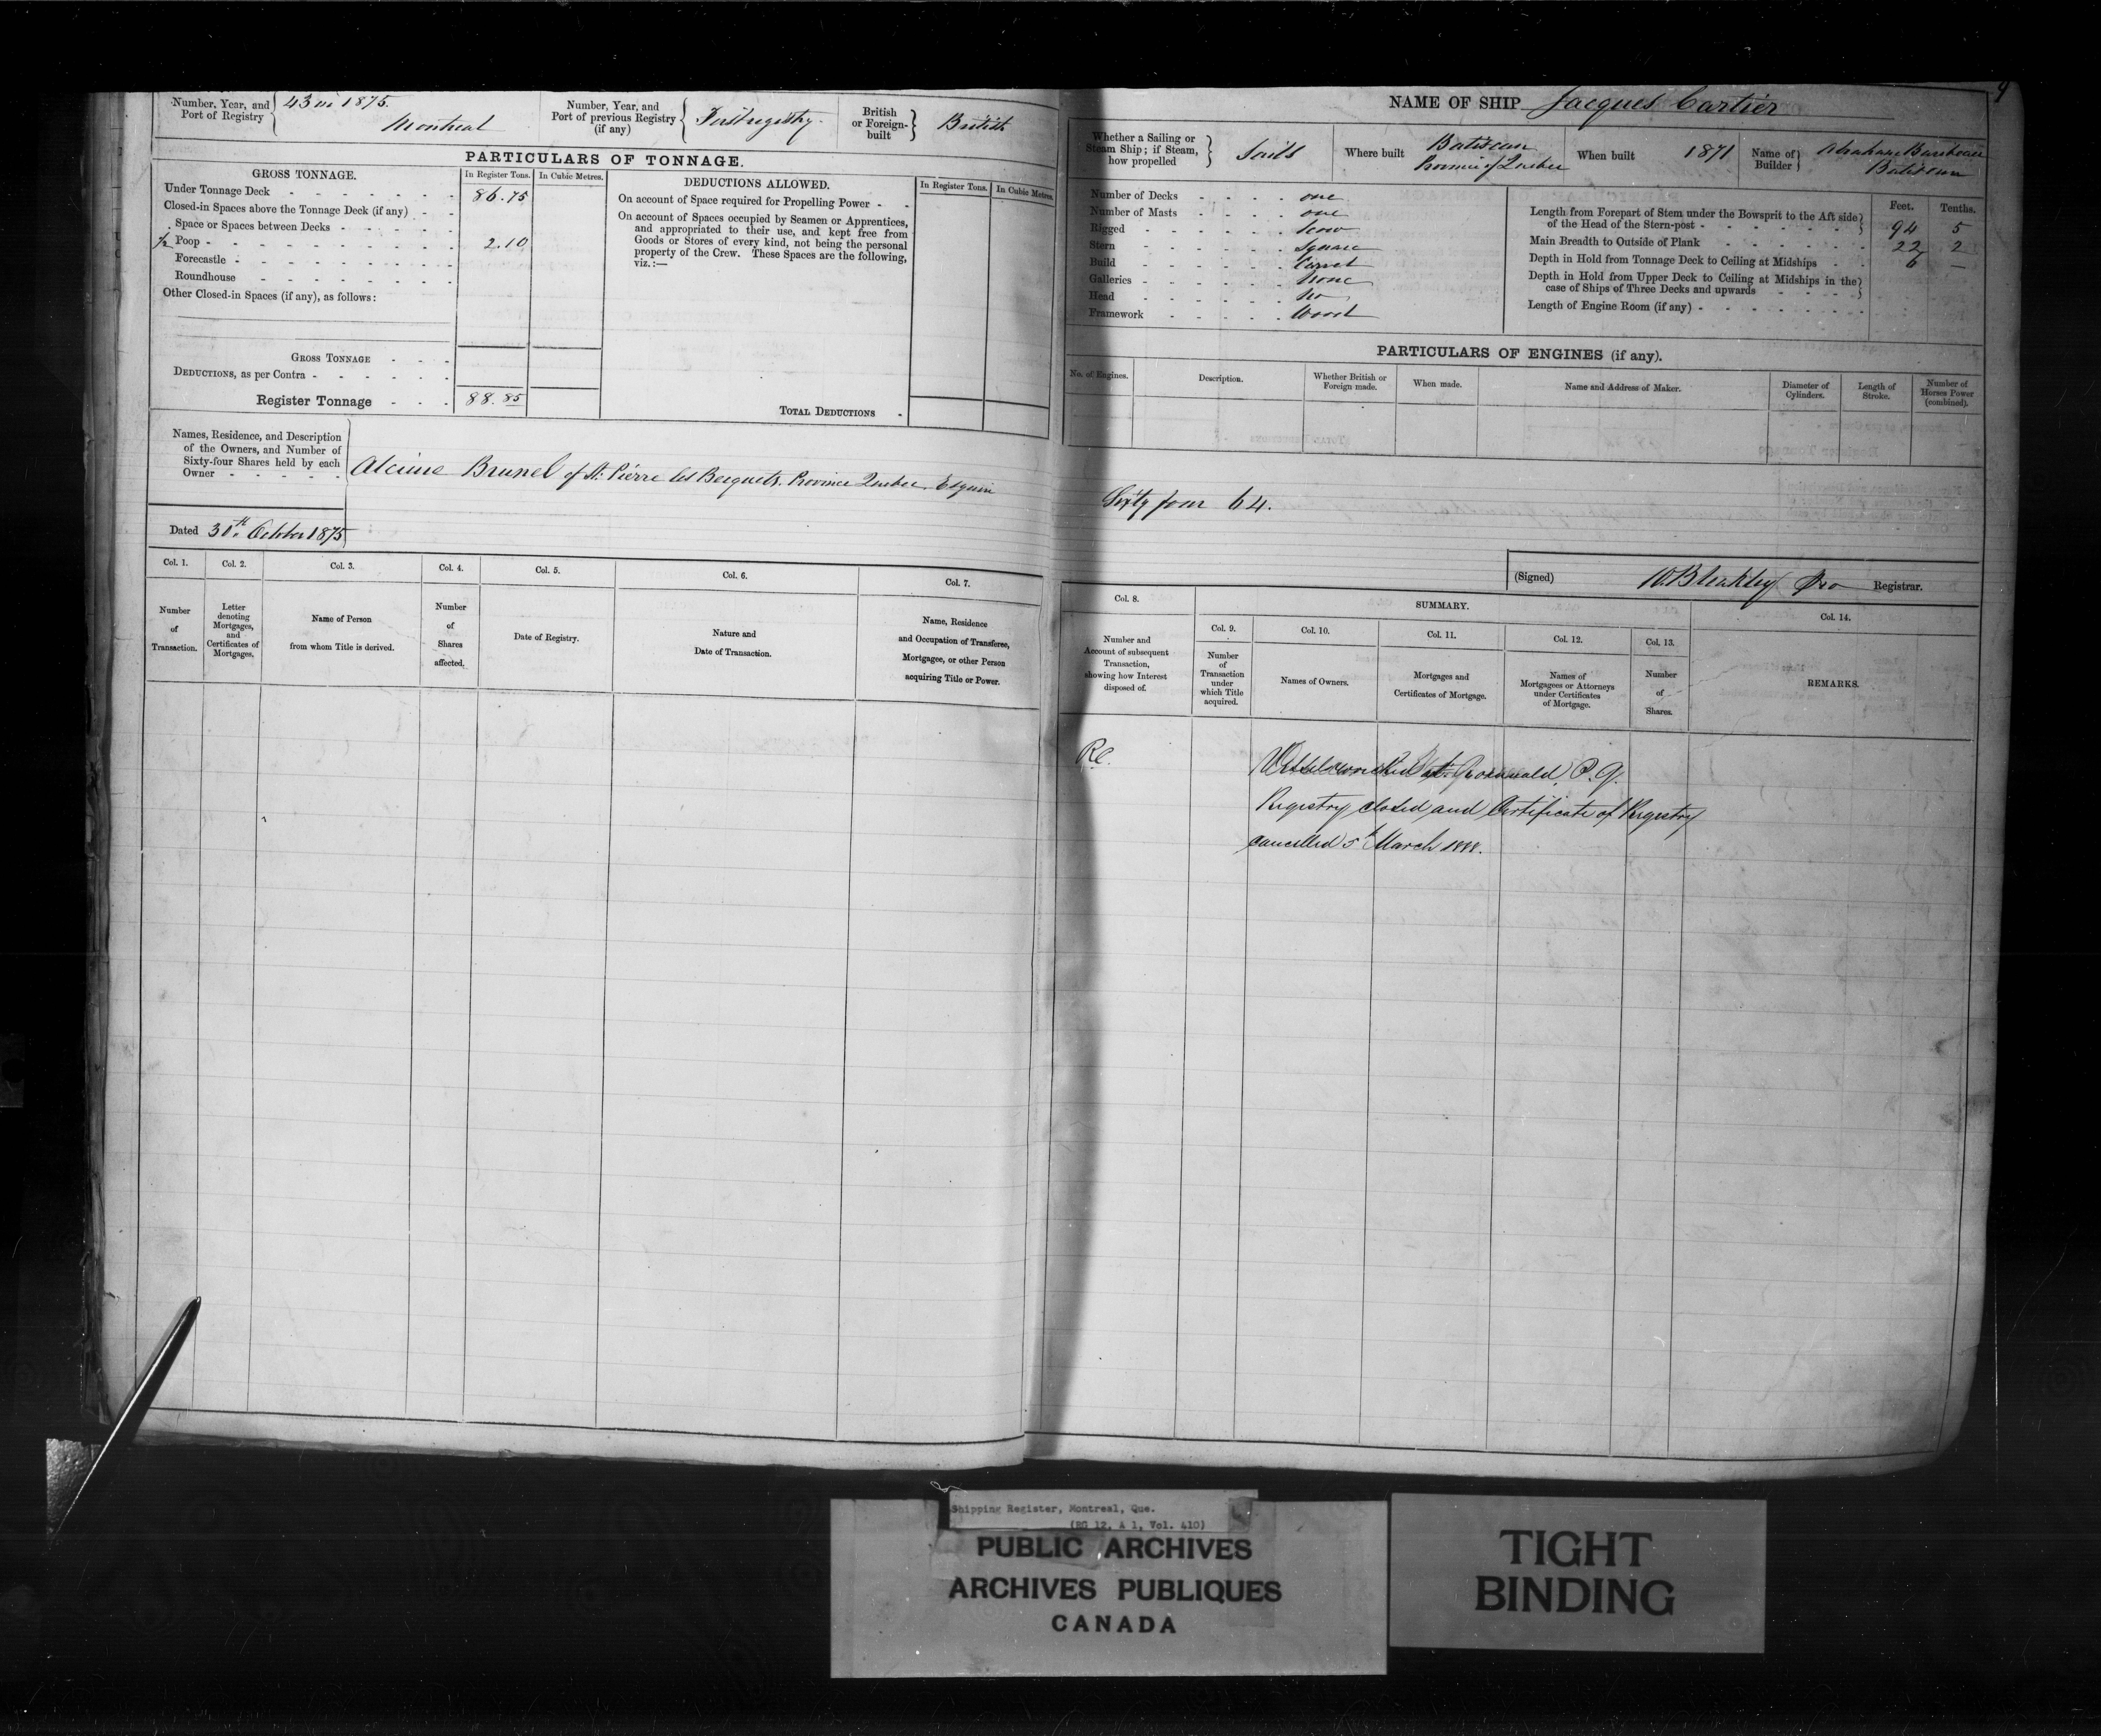 Number, Year, and Port of Registry { 43 in 1875. Montreal
Number, Year, and Port of previous Registry (if any) { First registry.
British or Foreign-built } British
PARTICULARS OF TONNAGE.
GROSS TONNAGE. In Register Tons. In Cubic Metres.
Under Tonnage Deck 86.75
Closed-in Spaces above the Tonnage Deck (if any)
Space or Spaces between Decks
½ Poop 2.10
Forecastle
Roundhouse
Other Closed-in Spaces (if any), as follows:
GROSS TONNAGE
DEDUCTIONS, as per Contra
Register Tonnage 88.85
DEDUCTIONS ALLOWED. In Register Tons. In Cubic Metres.
On account of Space required for Propelling Power
On account of Spaces occupied by Seamen or Apprentices,
and appropriated to their use, and kept free from
Goods or Stores of every kind, not being the personal
property of the Crew. These Spaces are the following,
viz.:—
TOTAL DEDUCTIONS
Names, Residence, and Description
of the Owners, and Number of
Sixty-four Shares held by each
Owner
Alcime Brunel of St. Pierre les Becquets, Province Quebec, Esquire
Dated 30th October 1875
Col. 1. Col. 2. Col. 3. Col. 4. Col. 5. Col. 6. Col. 7.
Number of Transaction.
Letter denoting Mortgages, and Certificates of Mortgages.
Name of Person from whom Title is derived.
Number of Shares affected.
Date of Registry.
Nature and Date of Transaction.
Name, Residence and Occupation of Transferee, Mortgagee, or other Person acquiring Title or Power.
9
NAME OF SHIP Jacques Cartier
Whether a Sailing or Steam Ship; if Steam, how propelled } Sails
Where built Batiscan Province of Quebec
When built 1871
Name of Builder } Abraham Batiscan
Number of Decks one
Number of Masts one
Rigged Scow
Stern Square
Build Carvel
Galleries None
Head No
Framework Wood
Feet. Tenths.
Length from Forepart of Stem under the Bowsprit to the Aft side
of the Head of the Stern-post 94 5
Main Breadth to Outside of Plank 22 2
Depth in Hold from Tonnage Deck to Ceiling at Midships 6 —
Depth in Hold from Upper Deck to Ceiling at Midships in the
case of Ships of Three Decks and upwards
Length of Engine Room (if any)
PARTICULARS OF ENGINES (if any).
No. of Engines. Description. Whether British or Foreign made. When made. Name and Address of Maker. Diameter of Cylinders. Length of Stroke. Number of Horses Power (combined).
Sixty four 64.
(Signed) W. Bleakley Pro Registrar.
Col. 8. SUMMARY. Col. 14.
Col. 9. Col. 10. Col. 11. Col. 12. Col. 13.
Number and Account of subsequent Transaction, showing how Interest disposed of.
Number of Transaction under which Title acquired.
Names of Owners.
Mortgages and Certificates of Mortgage.
Names of Mortgagees or Attorneys under Certificates of Mortgage.
Number of Shares.
REMARKS.
RC.
Vessel wrecked at P.Q.
Registry closed and Certificate of Registry
cancelled 5th March 1888.
Shipping Register, Montreal, Que.
(RG 12, A 1, Vol. 410)
PUBLIC ARCHIVES
ARCHIVES PUBLIQUES
CANADA
TIGHT
BINDING